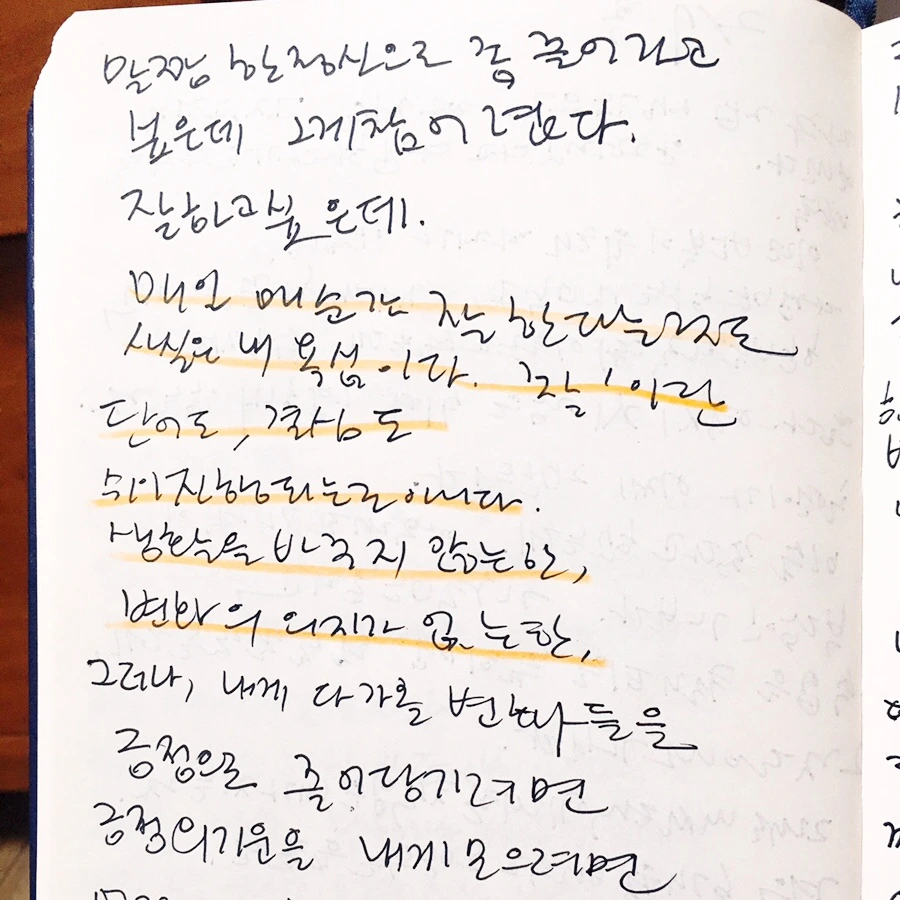 말짱 한 정신으로 좀 들어가고
싶은데 그게 참 어렵다.
잘하고싶은데.
매일 매순간 잘 한다는것도
사실은 내 욕심이다. '잘'이란
단어도, 결심도
쉬이 진행되는글 아니다.
생활을 바꾸지 않는한,
변화의 의지가 없는한,
그러나, 내게 다가올 변화들을
긍정으로 끌어당기려면
긍정의기운을 내게모으려면